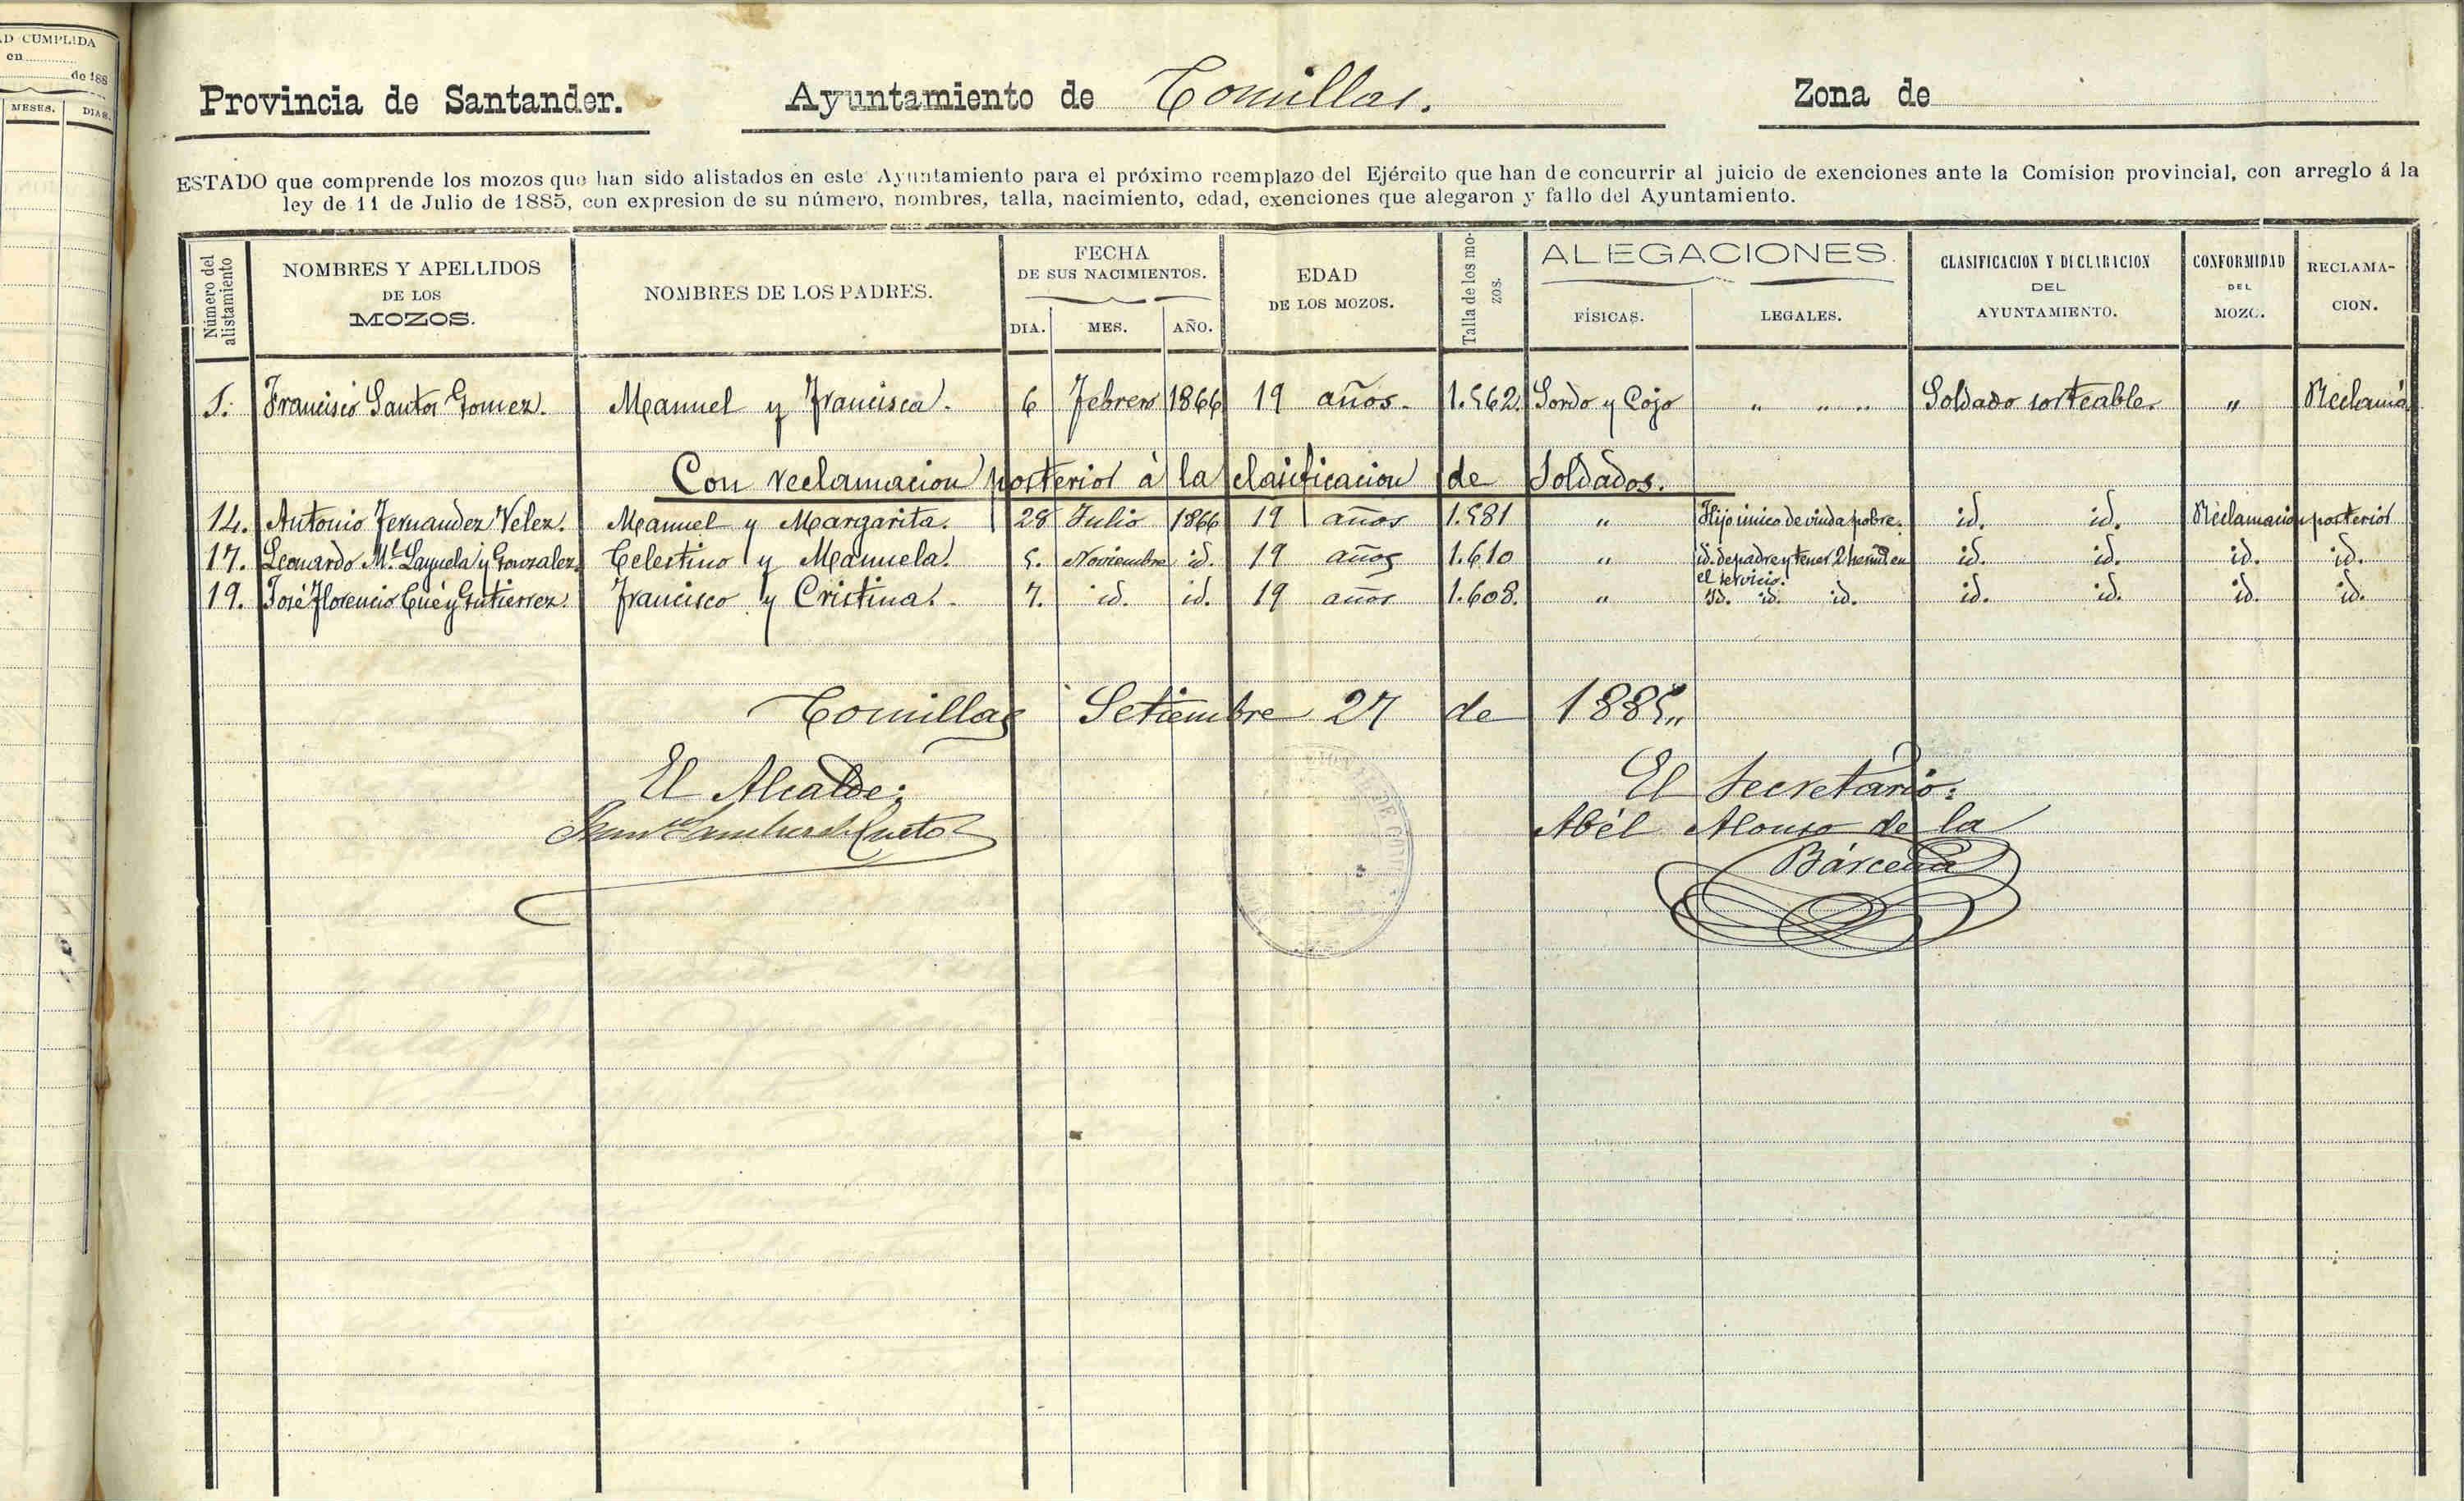 AD CUMPLIDA
en
de 188
MESES. DIAS.
Provincia de Santander. Ayuntamiento de Comillas. Zona de
ESTADO que comprende los mozos que han sido alistados en este Ayuntamiento para el próximo reemplazo del Ejército que han de concurrir al juicio de exenciones ante la Comision provincial, con arreglo á la
ley de 11 de Julio de 1885, con expresion de su número, nombres, talla, nacimiento, edad, exenciones que alegaron y fallo del Ayuntamiento.
Número del alistamiento
NOMBRES Y APELLIDOS
DE LOS
MOZOS.
NOMBRES DE LOS PADRES.
FECHA
DE SUS NACIMIENTOS.
DIA. MES. AÑO.
EDAD
DE LOS MOZOS.
Talla de los mo-
zos.
ALEGACIONES.
FÍSICAS. LEGALES.
CLASIFICACION Y DECLARACION
DEL
AYUNTAMIENTO.
CONFORMIDAD
DEL
MOZO.
RECLAMA-
CION.
5. Francisco Santos Gomez. Manuel y Francisca. 6 Febrero 1866 19 años. 1.562. Sordo y Cojo " " " Soldado sorteable. " Reclamó
Con reclamacion posterior á la clasificacion de Soldados.
14. Antonio Fernandez Velez. Manuel y Margarita. 28 Julio 1866 19 años 1.581 " Hijo único de viuda pobre. id. id. Reclamacion posterior
17. Leonardo M.ª y Gonzalez. Celestino y Manuela. 5. Noviembre id. 19 años 1.610 " id. de padre y tener 2 herm.s en id. id. id. id.
el servicio.
19. José Florencio Cué y Gutierrez. Francisco y Cristina. 7. id. id. 19 años 1.608. " Id. id. id. id. id. id. id.
Comillas Setiembre 27 de 1885.
El Alcalde: El Secretario:
Cueto Abél Alonso de la
Bárcena